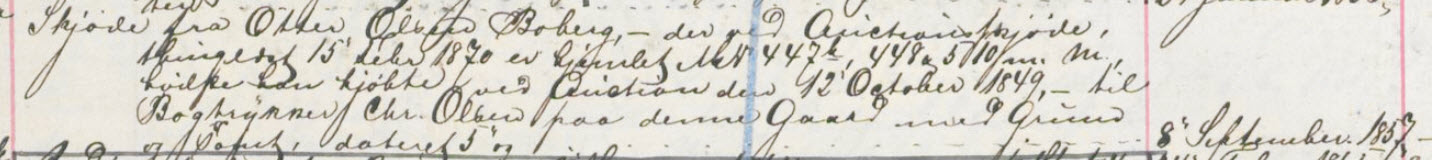 Skjøde fra Otter Olsen Boberg, – der ved Auctionsskjøde,
thinglæst 15' febr 1870 er hjemlet M. N. 447b, 448a, 510 m. M.,
hvilke han kjøbte ved Auction den 12' October 1849, – til
Bogtrykker Chr. Olsen paa denne Gaard med Grund
og Tomt, dateret 5" og
8" September 1857